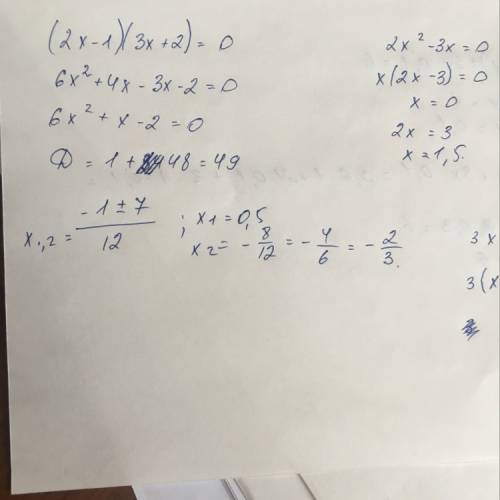 (2x-1)(3x+2) = 0
6x² + 4x - 3x - 2 = 0
6x² + x - 2 = 0
D = 1 + 48 = 49
x₁,₂ = (-1 ± 7) / 12 ; x₁ = 0,5
x₂ = - 8/12 = - 4/6 = - 2/3.
2x² - 3x = 0
x(2x - 3) = 0
x = 0
2x = 3
x = 1,5.
3x
3(x